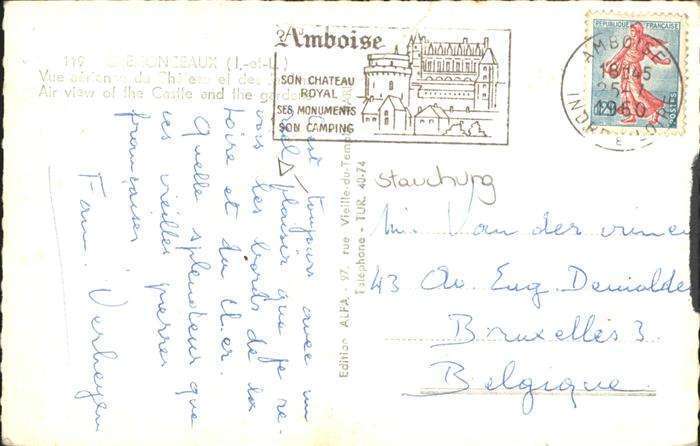 119 - CHENONCEAUX (I.-et-L.)
Vue aérienne du Château et des
Air view of the Castle and the garden
Amboise
SON CHATEAU
ROYAL
SES MONUMENTS
SON CAMPING
REPUBLIQUE FRANÇAISE
POSTES
AMBOISE
18H45
1960
INDRE
C'est toujours avec un
réel plaisir que je re-
vois les bords de la
Loire et du Cher.
Quelle splendeur que
ces vieilles pierres
françaises
Fam. Verheyen
Edition ALFA - 97, rue Vieille-du-Temple
Téléphone - TUR. 40-74
stauchung
Van der
43 Av. Eug. Demolder
Bruxelles 3.
Belgique